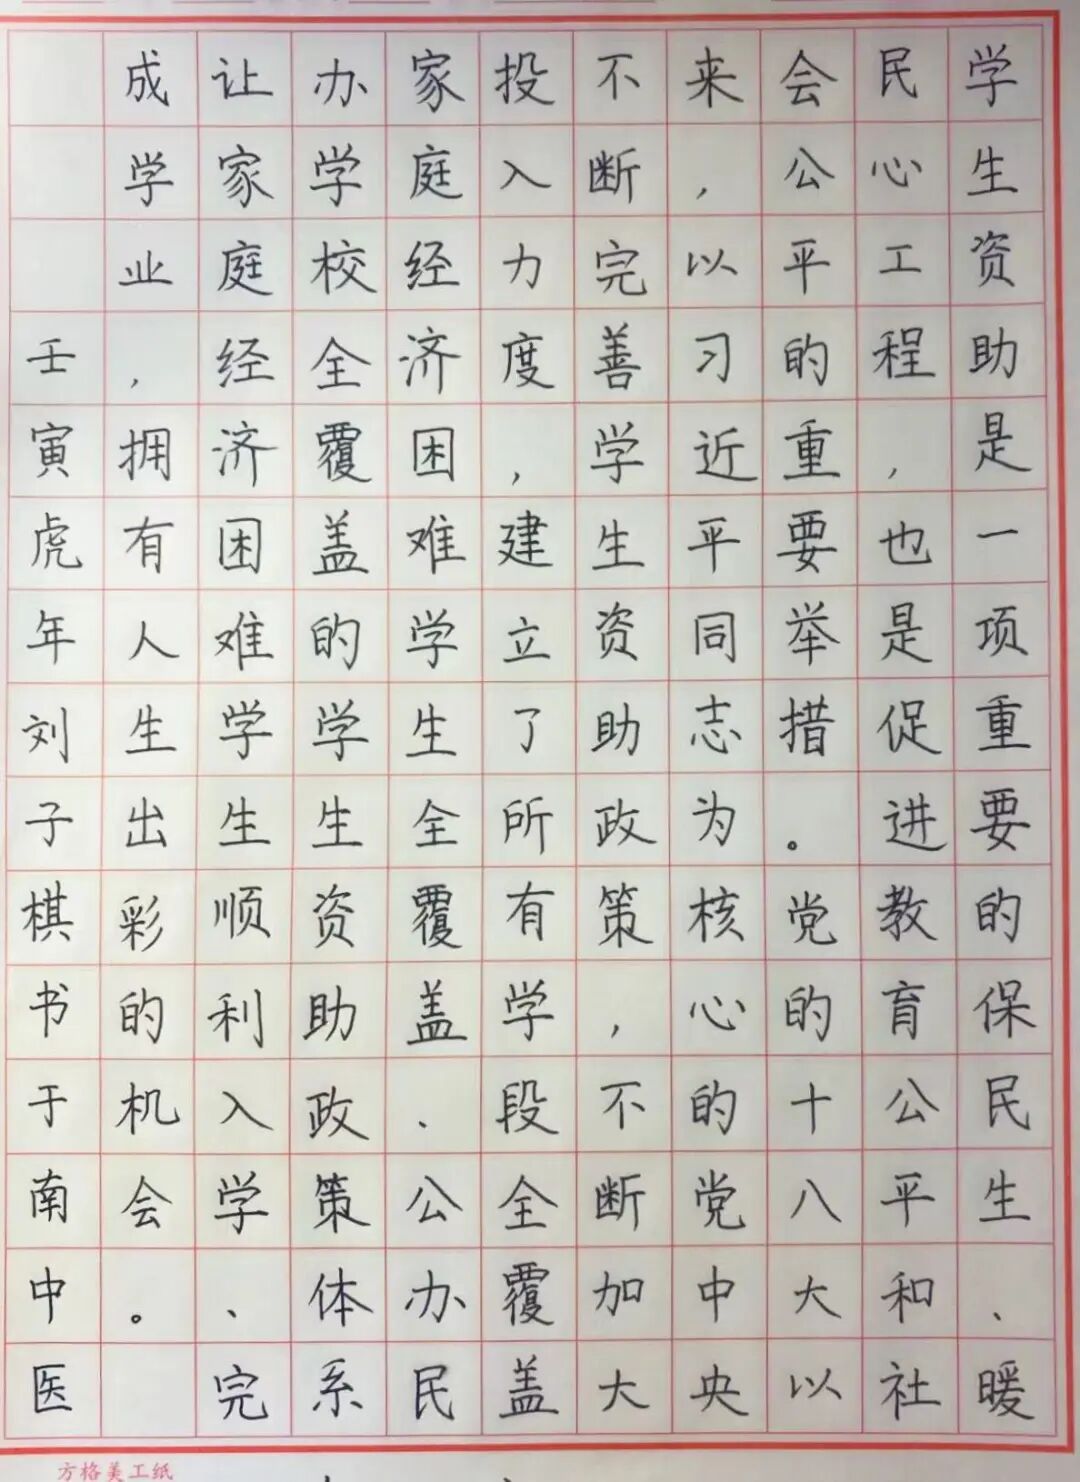 学生资助是一项重要的保民生、暖
民心工程,也是促进教育公平和社
会公平的重要举措。党的十八大以
来,以习近平同志为核心的党中央
不断完善学生资助政策,不断加大
投入力度,建立了所有学段全覆盖
家庭经济困难学生全覆盖、公办民
办学校全覆盖的学生资助政策体系
让家庭经济困难学生顺利入学、完
成学业,拥有人生出彩的机会。
壬寅虎年刘子棋书于南中医
方格美工纸